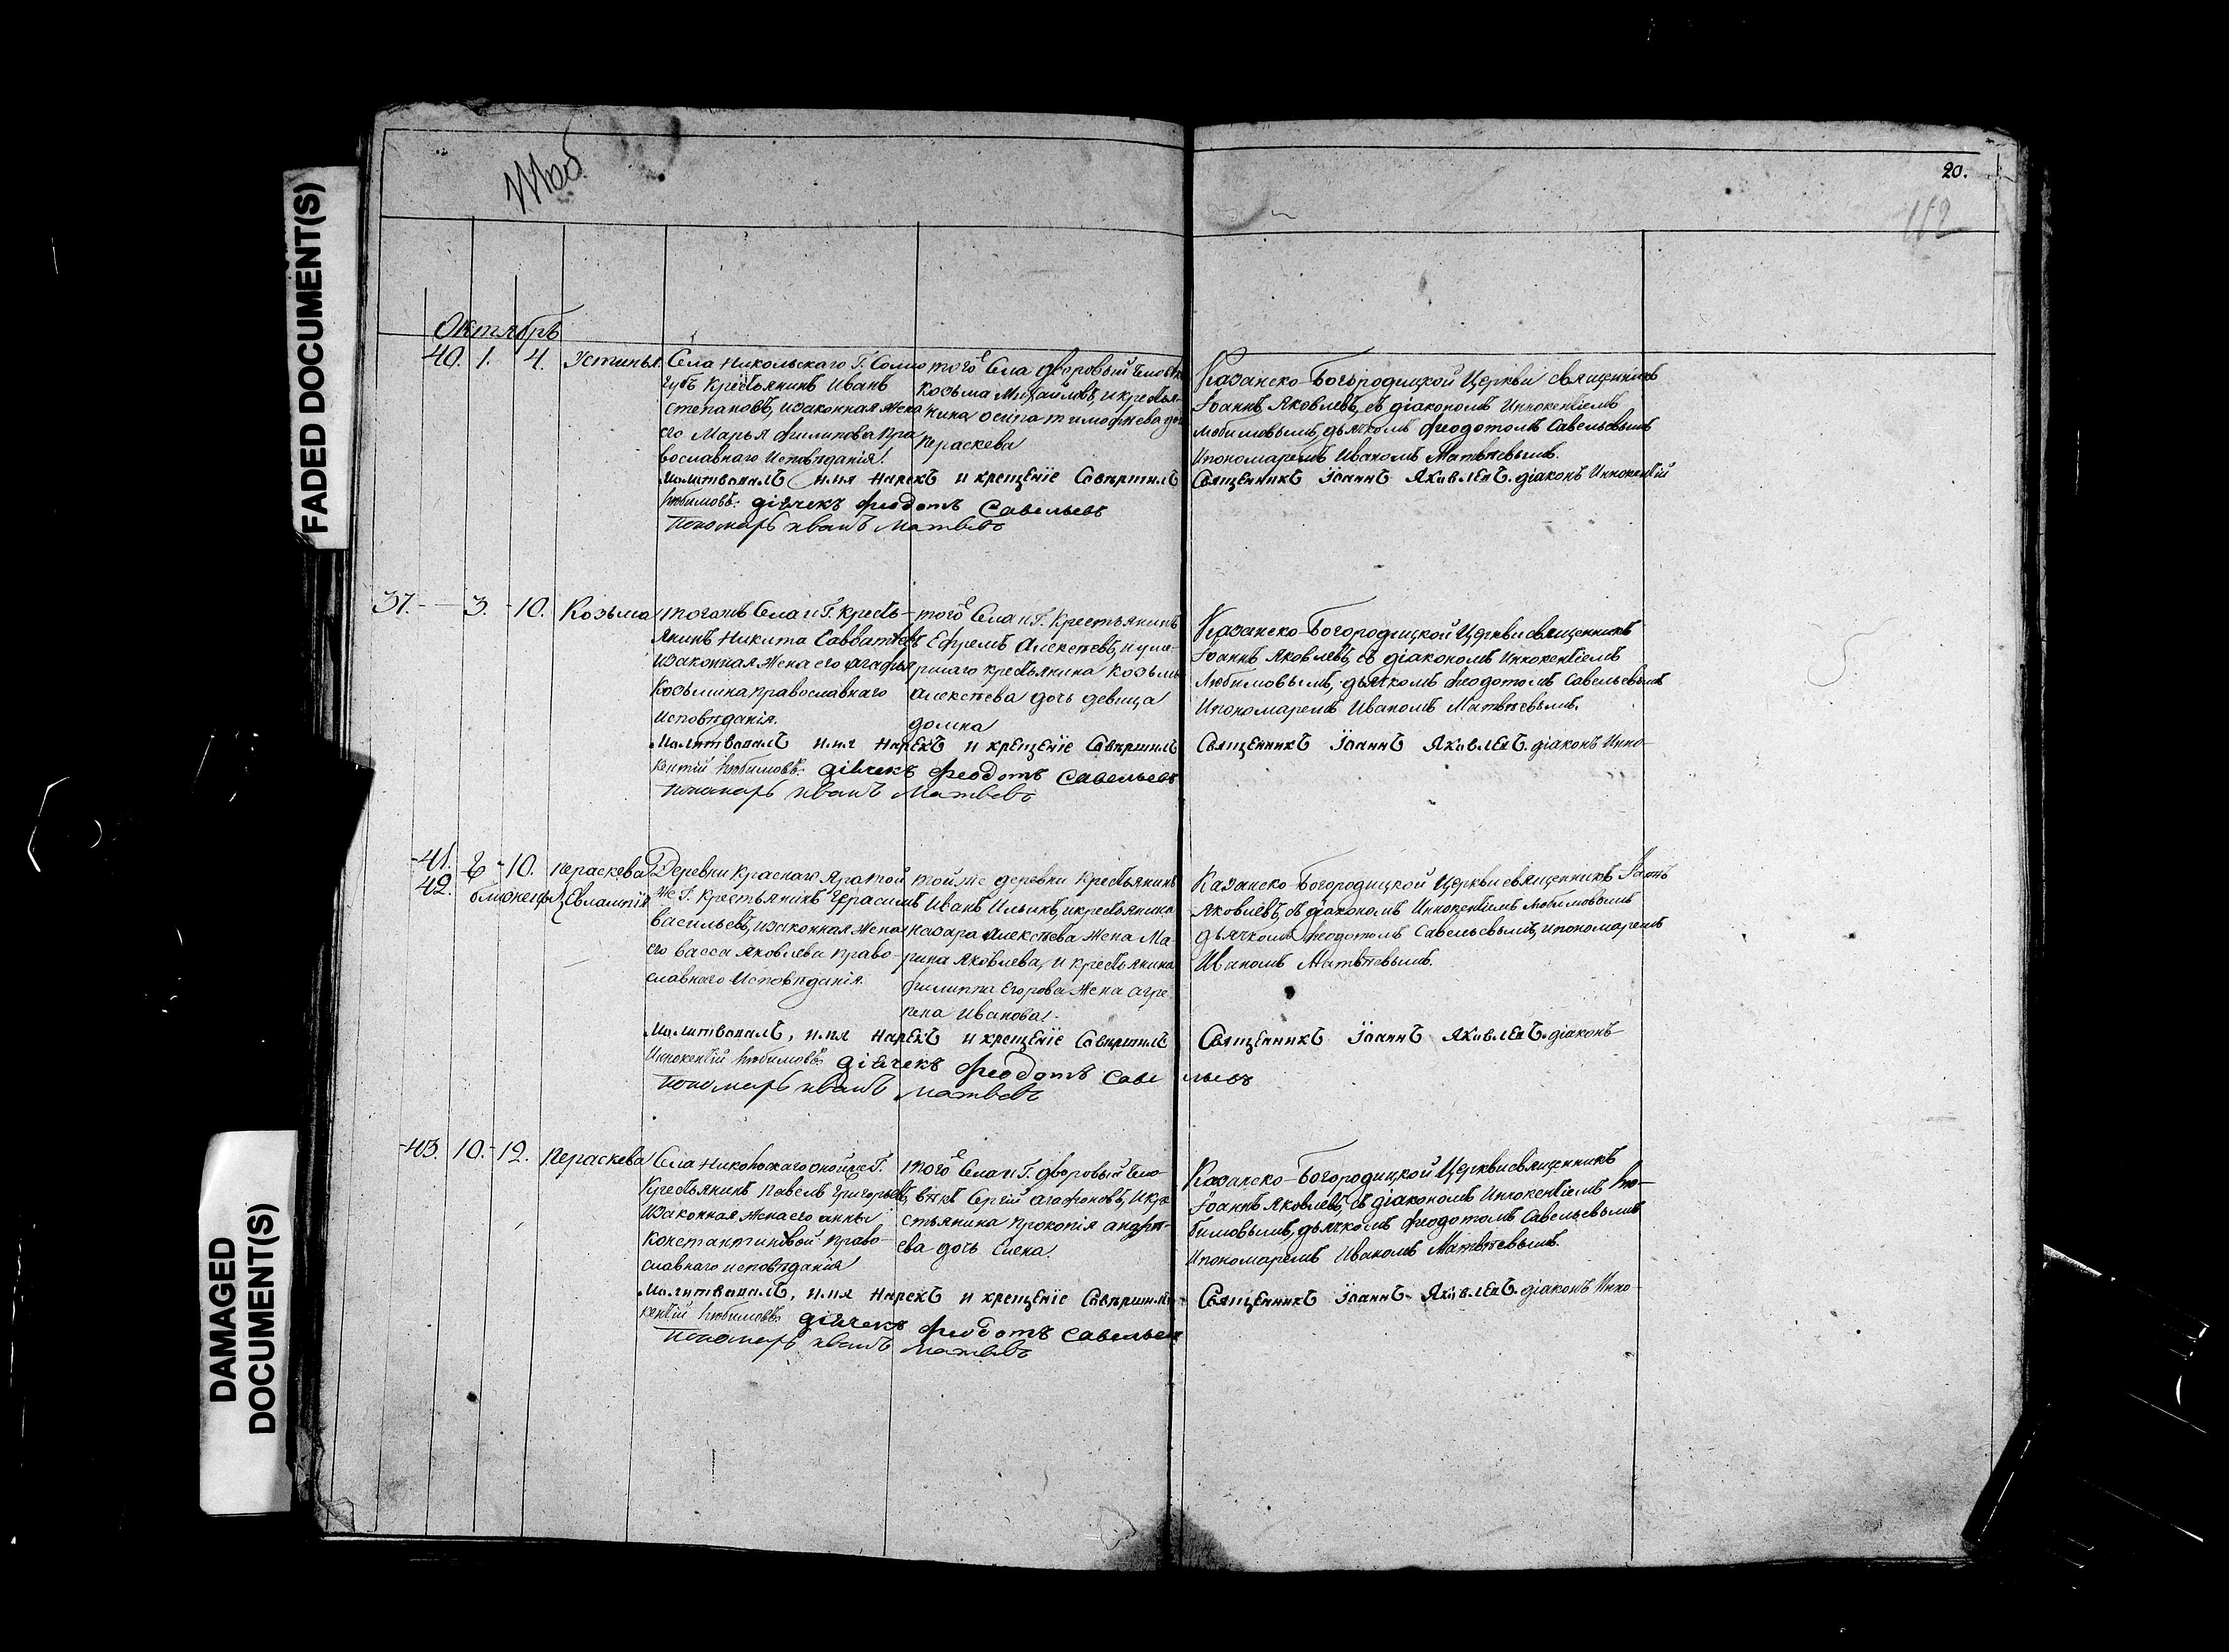 FADED DOCUMENT(S)
DAMAGED
DOCUMENT(S)
20.
112
Октябрь
40. 1. 4. Устинья.
Села Никольскаго Г.
губъ крестьянинъ Иванъ
Степановъ, изаконная жена
его Марья филипова пра
вославнаго Исповѣданія.
того Села дворовый
Козьма Михайловъ, икрестья-
нина осипа тимофѣева
пераскева
Казанско-Богородицкой Церкви священникъ
Іоаннъ Яковлевъ, съ діакономъ Иннокентіемъ
любимовымъ, дьячкомъ феодотомъ Савельевымъ
Ипономаремъ Иваномъ Матвѣевымъ.
Молитвовалъ имя нарекъ и крещеніе Совершилъ Священникъ Іоаннъ Яковлевъ. діаконъ Иннокентій
любимовъ. дьячекъ феодотъ Савельевъ
пономарь иванъ Матвевъ
37. 3. 10. Козьма
тогожъ Села и Г. кресть-
янинъ Никита Савватеевъ
изаконная жена его агафья
Козьмина православнаго
исповѣданія.
того Села и Г. Крестьянинъ
Ефремъ Алексѣевъ, иуме-
ршаго крестьянина Козьмы
Алексѣева дочь девица
домна
Казанско-Богородицкой Церкви священникъ
Іоаннъ Яковлевъ, съ діакономъ Иннокентіемъ
Любимовымъ, дьячкомъ феодотомъ Савельевымъ
Ипономаремъ Иваномъ Матвѣевымъ.
Молитвовалъ имя нарекъ и крещеніе Совершилъ Священникъ Іоаннъ Яковлевъ. діаконъ Инно-
кентій любимовъ. дьячекъ феодотъ Савельевъ
пономарь иванъ Матвевъ
41. 6 10. пераскева
42. близнецы Евлампія
Деревни Краснаго Яра той
же Г. Крестьянинъ Герасимъ
васильевъ, изаконная жена
его васса Яковлева право-
славнаго Исповѣданія.
тойже деревни Крестьянинъ
Иванъ Ильинъ, икрестьянина
назара Алексѣева жена Ма-
рина Яковлева, и крестьянина
филиппа Егорова жена агре
пена Иванова.
Казанско-Богородицкой Церкви священникъ Іоаннъ
Яковлевъ, съ діакономъ Иннокентіемъ любимовымъ
дьячкомъ феодотомъ Савельевымъ, ипономаремъ
Иваномъ Матвѣевымъ.
Молитвовалъ, имя нарекъ и крещеніе Совершилъ Священникъ Іоаннъ Яковлевъ. діаконъ
Иннокентій любимовъ. дьячекъ феодотъ Саве льевъ
пономарь иванъ Матвевъ
43. 10. 12. Пераскева
Села Никольскаго онойже Г.
Крестьянинъ Павелъ Григорьевъ,
изаконная жена его анны
Константиновой право-
славнаго исповѣданія
того Села и Г. дворовый чело
вѣкъ Сергій агафоновъ, Икре
стьянина Прокопія андрѣ-
ева дочь Елена.
Казанско-Богородицкой Церкви священникъ
Іоаннъ Яковлевъ, съ діакономъ Иннокентіемъ лю-
бимовымъ, дьячкомъ феодотомъ Савельевымъ
Ипономаремъ Иваномъ Матвѣевымъ.
Молитвовалъ, имя нарекъ и крещеніе Совершилъ Священникъ Іоаннъ Яковлевъ. діаконъ Инно-
кентій любимовъ. дьячекъ феодотъ Савельевъ
пономарь иванъ Матвевъ